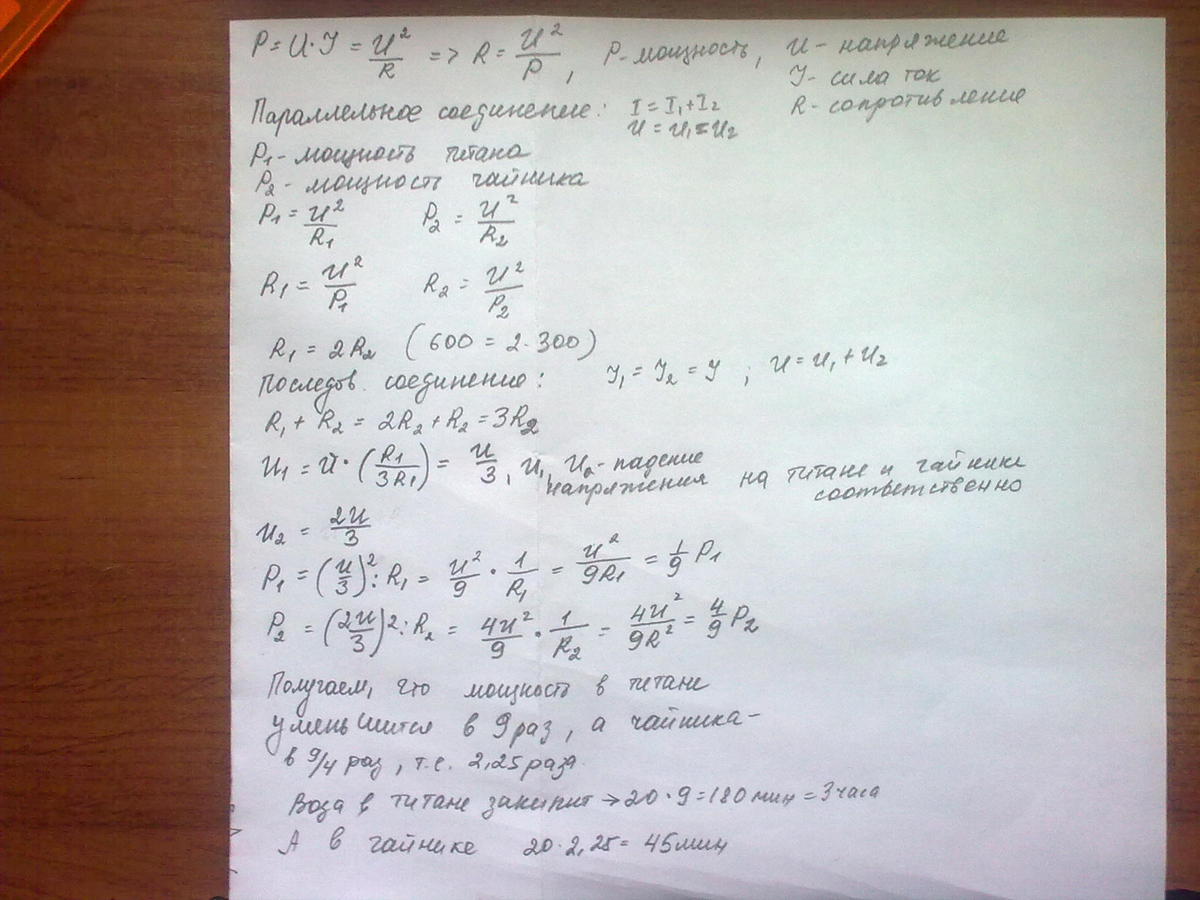 P = U·I = U²/R => R = U²/P, P - мощность, U - напряжение
I - сила ток
R - сопротивление
Параллельное соединение: I = I₁+I₂
U = U₁ = U₂
P₁ - мощность титана
P₂ - мощность чайника
P₁ = U²/R₁ P₂ = U²/R₂
R₁ = U²/P₁ R₂ = U²/P₂
R₁ = 2R₂ (600 = 2·300)
Последов. соединение: I₁ = I₂ = I ; U = U₁ + U₂
R₁ + R₂ = 2R₂ + R₂ = 3R₂
U₁ = U·(R₁/3R₁) = U/3, U₁, U₂ - падение
напряжения на титане и чайнике
соответственно
U₂ = 2U/3
P₁ = (U/3)² : R₁ = U²/9 · 1/R₁ = U²/9R₁ = 1/9 P₁
P₂ = (2U/3)² : R₂ = 4U²/9 · 1/R₂ = 4U²/9R² = 4/9 P₂
Получаем, что мощность в титане
уменьшится в 9 раз, а чайника -
в 9/4 раз, т.е. 2,25 раза.
Вода в титане закипит → 20·9 = 180 мин = 3 часа
А в чайнике 20·2,25 = 45 мин